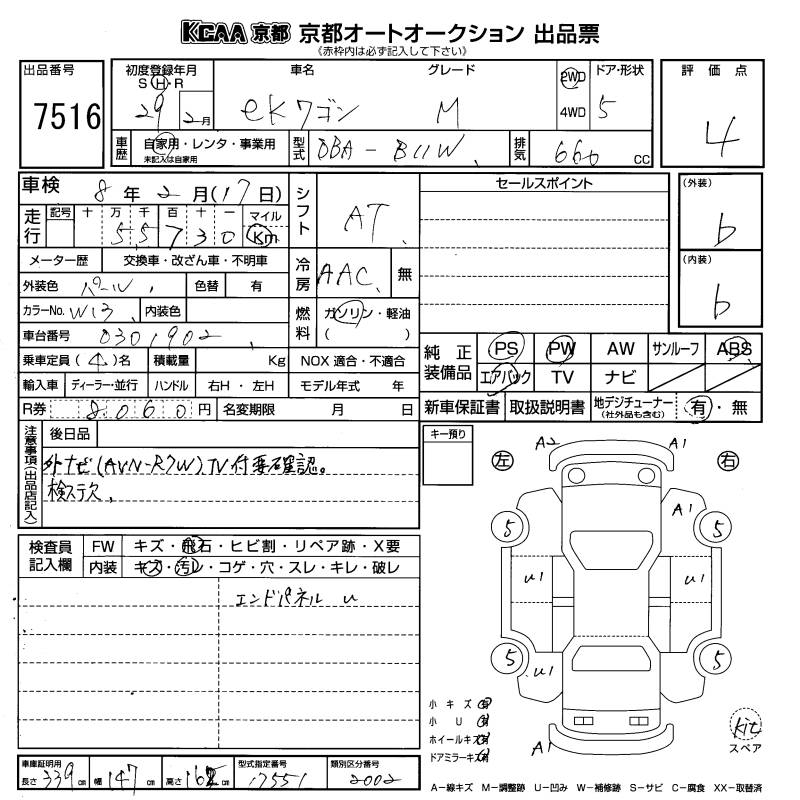 KCAA 京都 京都オートオークション 出品票
《赤枠内は必ず記入して下さい》
出品番号
7516
初度登録年月
S・H・R
29年2月
車名
グレード
eKワゴン M
2WD
4WD
ドア・形状
5
評価点
4
車歴
自家用・レンタ・事業用
未記入は自家用
型式
DBA-B11W
排気
660 CC
車検
8年2月(17日)
シフト
AT
セールスポイント
(外装)
b
走行
記号 十 万 千 百 十 一 マイル
55730 Km
メーター歴
交換車・改ざん車・不明車
冷房
AAC 無
(内装)
b
外装色 パール
色替 有
カラーNo. W13
内装色
燃料
ガソリン・軽油
( )
車台番号 0301902
乗車定員 (4)名
積載量 Kg
NOX 適合・不適合
純正装備品
PS PW AW サンルーフ ABS
エアバック TV ナビ
輸入車 ディーラー・並行 ハンドル 右H・左H モデル年式 年
R券 8060円
名変期限 月 日
新車保証書 取扱説明書 地デジチューナー
(社外品も含む)
有・無
注意事項(出品店記入)
後日品
外ナビ(AVN-R7W)、TV付要確認。
検ステ欠
キー預り
左
右
A2
A1
A1
5
5
U1
U1
5
5
U1
A1
検査員記入欄
FW キズ・飛石・ヒビ割・リペア跡・X要
内装 キズ・汚レ・コゲ・穴・スレ・キレ・破レ
エンドパネル U
小キズ 有
小U 有
ホイールキズ 有
ドアミラーキズ 有
kit
スペア
車庫証明用
長さ 339cm
幅 147cm
高さ 162cm
型式指定番号
17551
類別区分番号
2002
A-線キズ M-調整跡 U-凹み W-補修跡 S-サビ C-腐食 XX-取替済